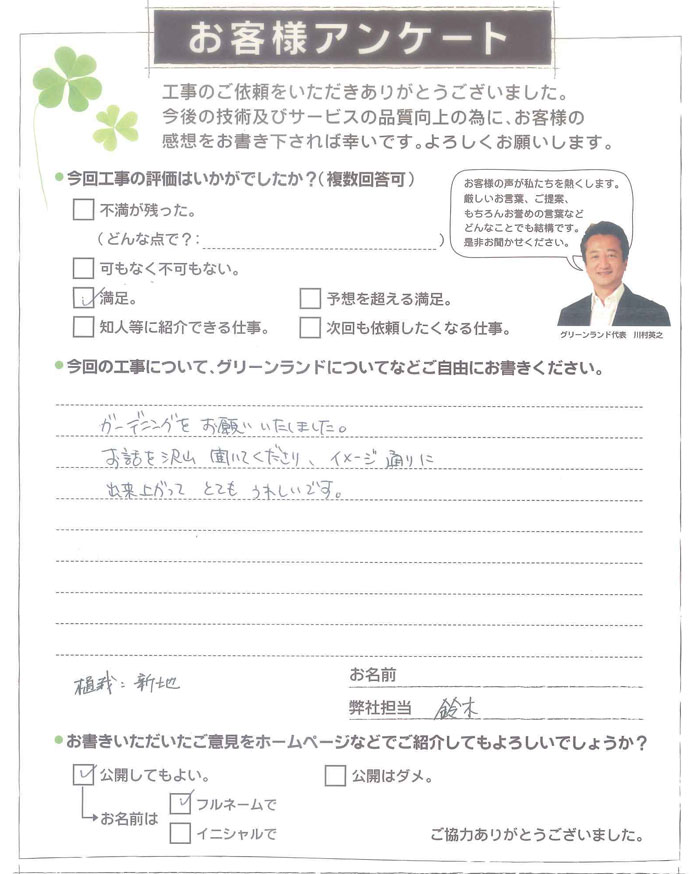 お客様アンケート
工事のご依頼をいただきありがとうございました。
今後の技術及びサービスの品質向上の為に、お客様の
感想をお書き下されば幸いです。よろしくお願いします。
今回工事の評価はいかがでしたか？(複数回答可)
不満が残った。
(どんな点で？: )
可もなく不可もない。
満足。
予想を超える満足。
知人等に紹介できる仕事。
次回も依頼したくなる仕事。
お客様の声が私たちを熱くします。
厳しいお言葉、ご提案、
もちろんお誉めの言葉など
どんなことでも結構です。
是非お聞かせください。
グリーンランド代表 川村英之
今回の工事について、グリーンランドについてなどご自由にお書きください。
ガーデニングを お願いいたしました。
お話を沢山 聞いてくださり、イメージ通りに
出来上がって とても うれしいです。
植栽：新地
お名前
弊社担当 鈴木
お書きいただいたご意見をホームページなどでご紹介してもよろしいでしょうか？
公開してもよい。
公開はダメ。
お名前は
フルネームで
イニシャルで
ご協力ありがとうございました。